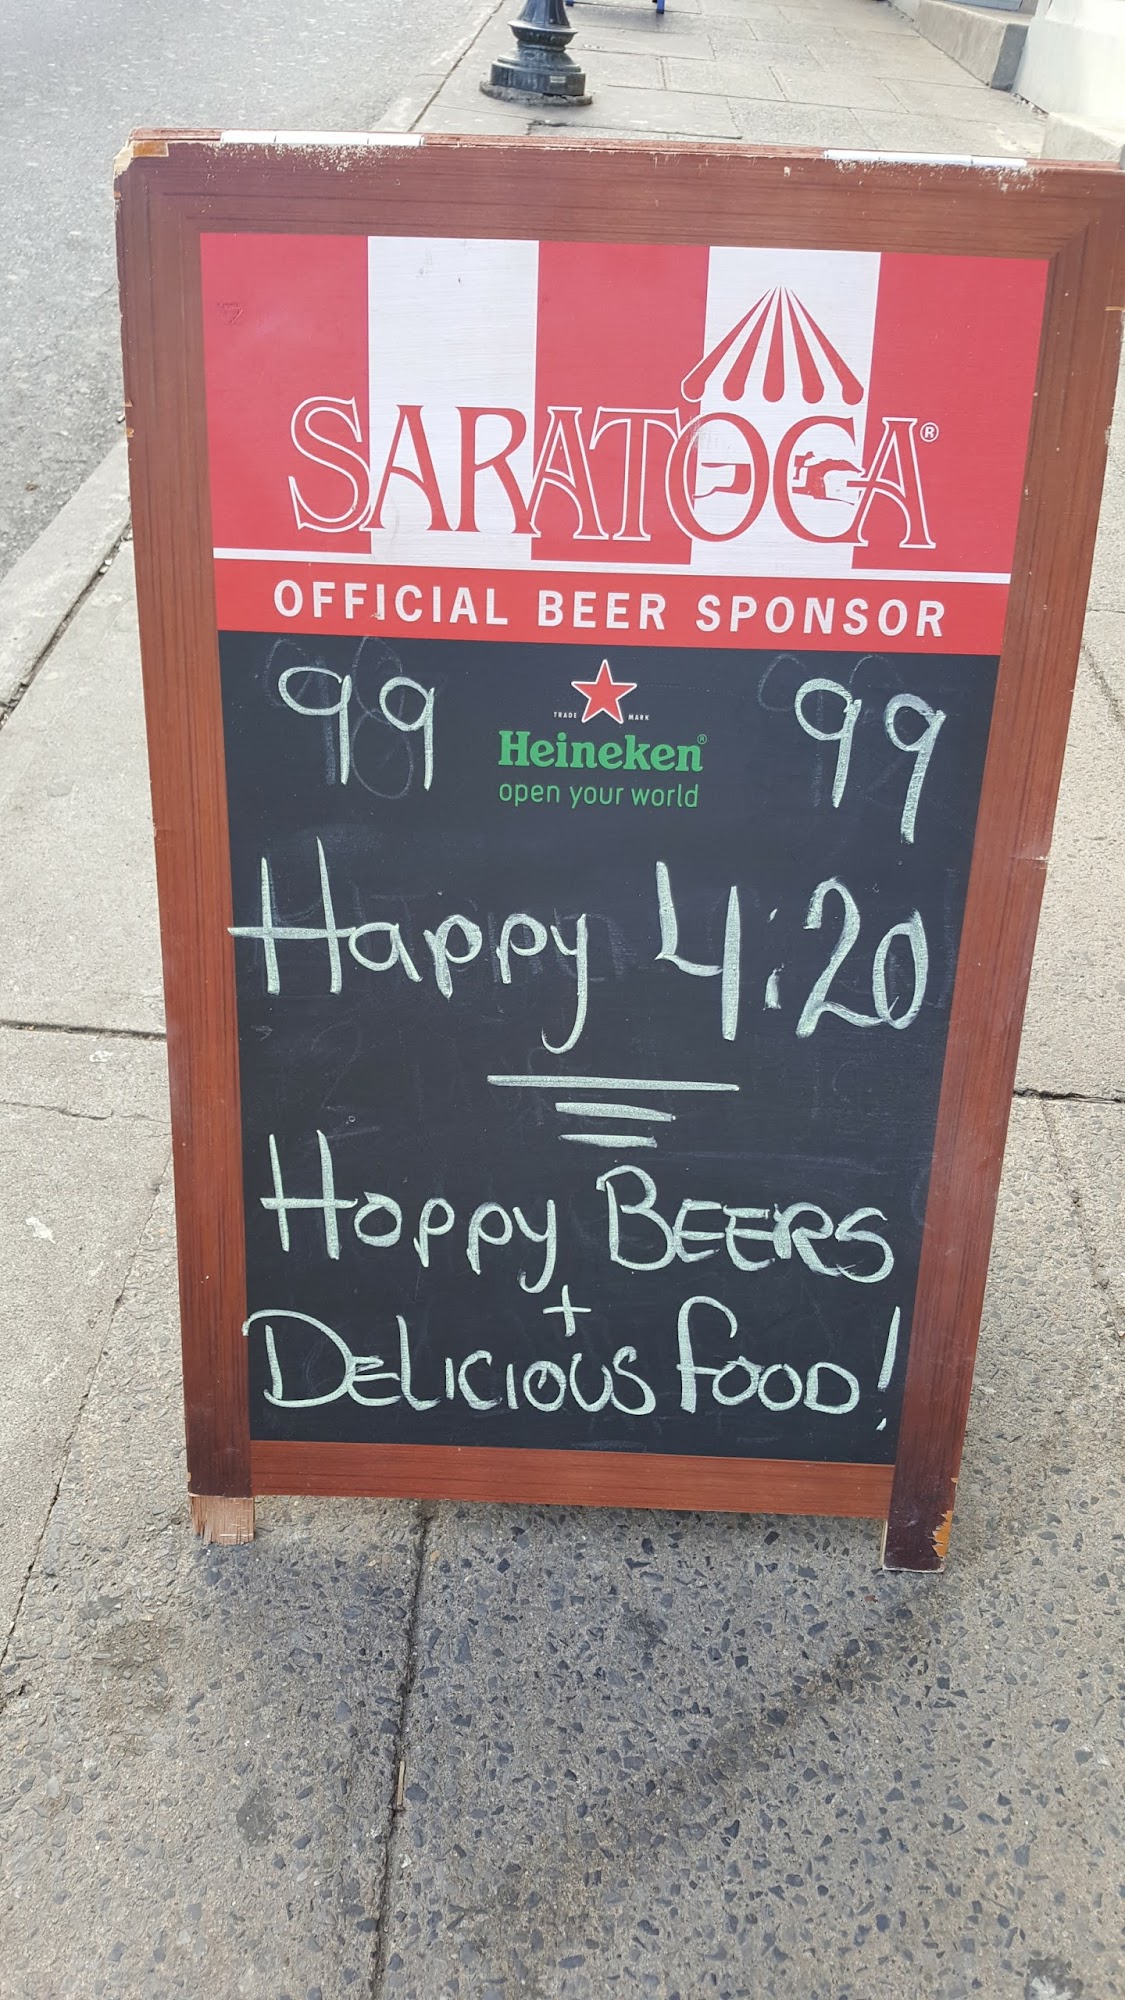 SARATOGA®
OFFICIAL BEER SPONSOR
99 99
TRADE MARK
Heineken®
open your world
Happy 4:20
Hoppy BEERS
+
DELICIOUS FOOD!